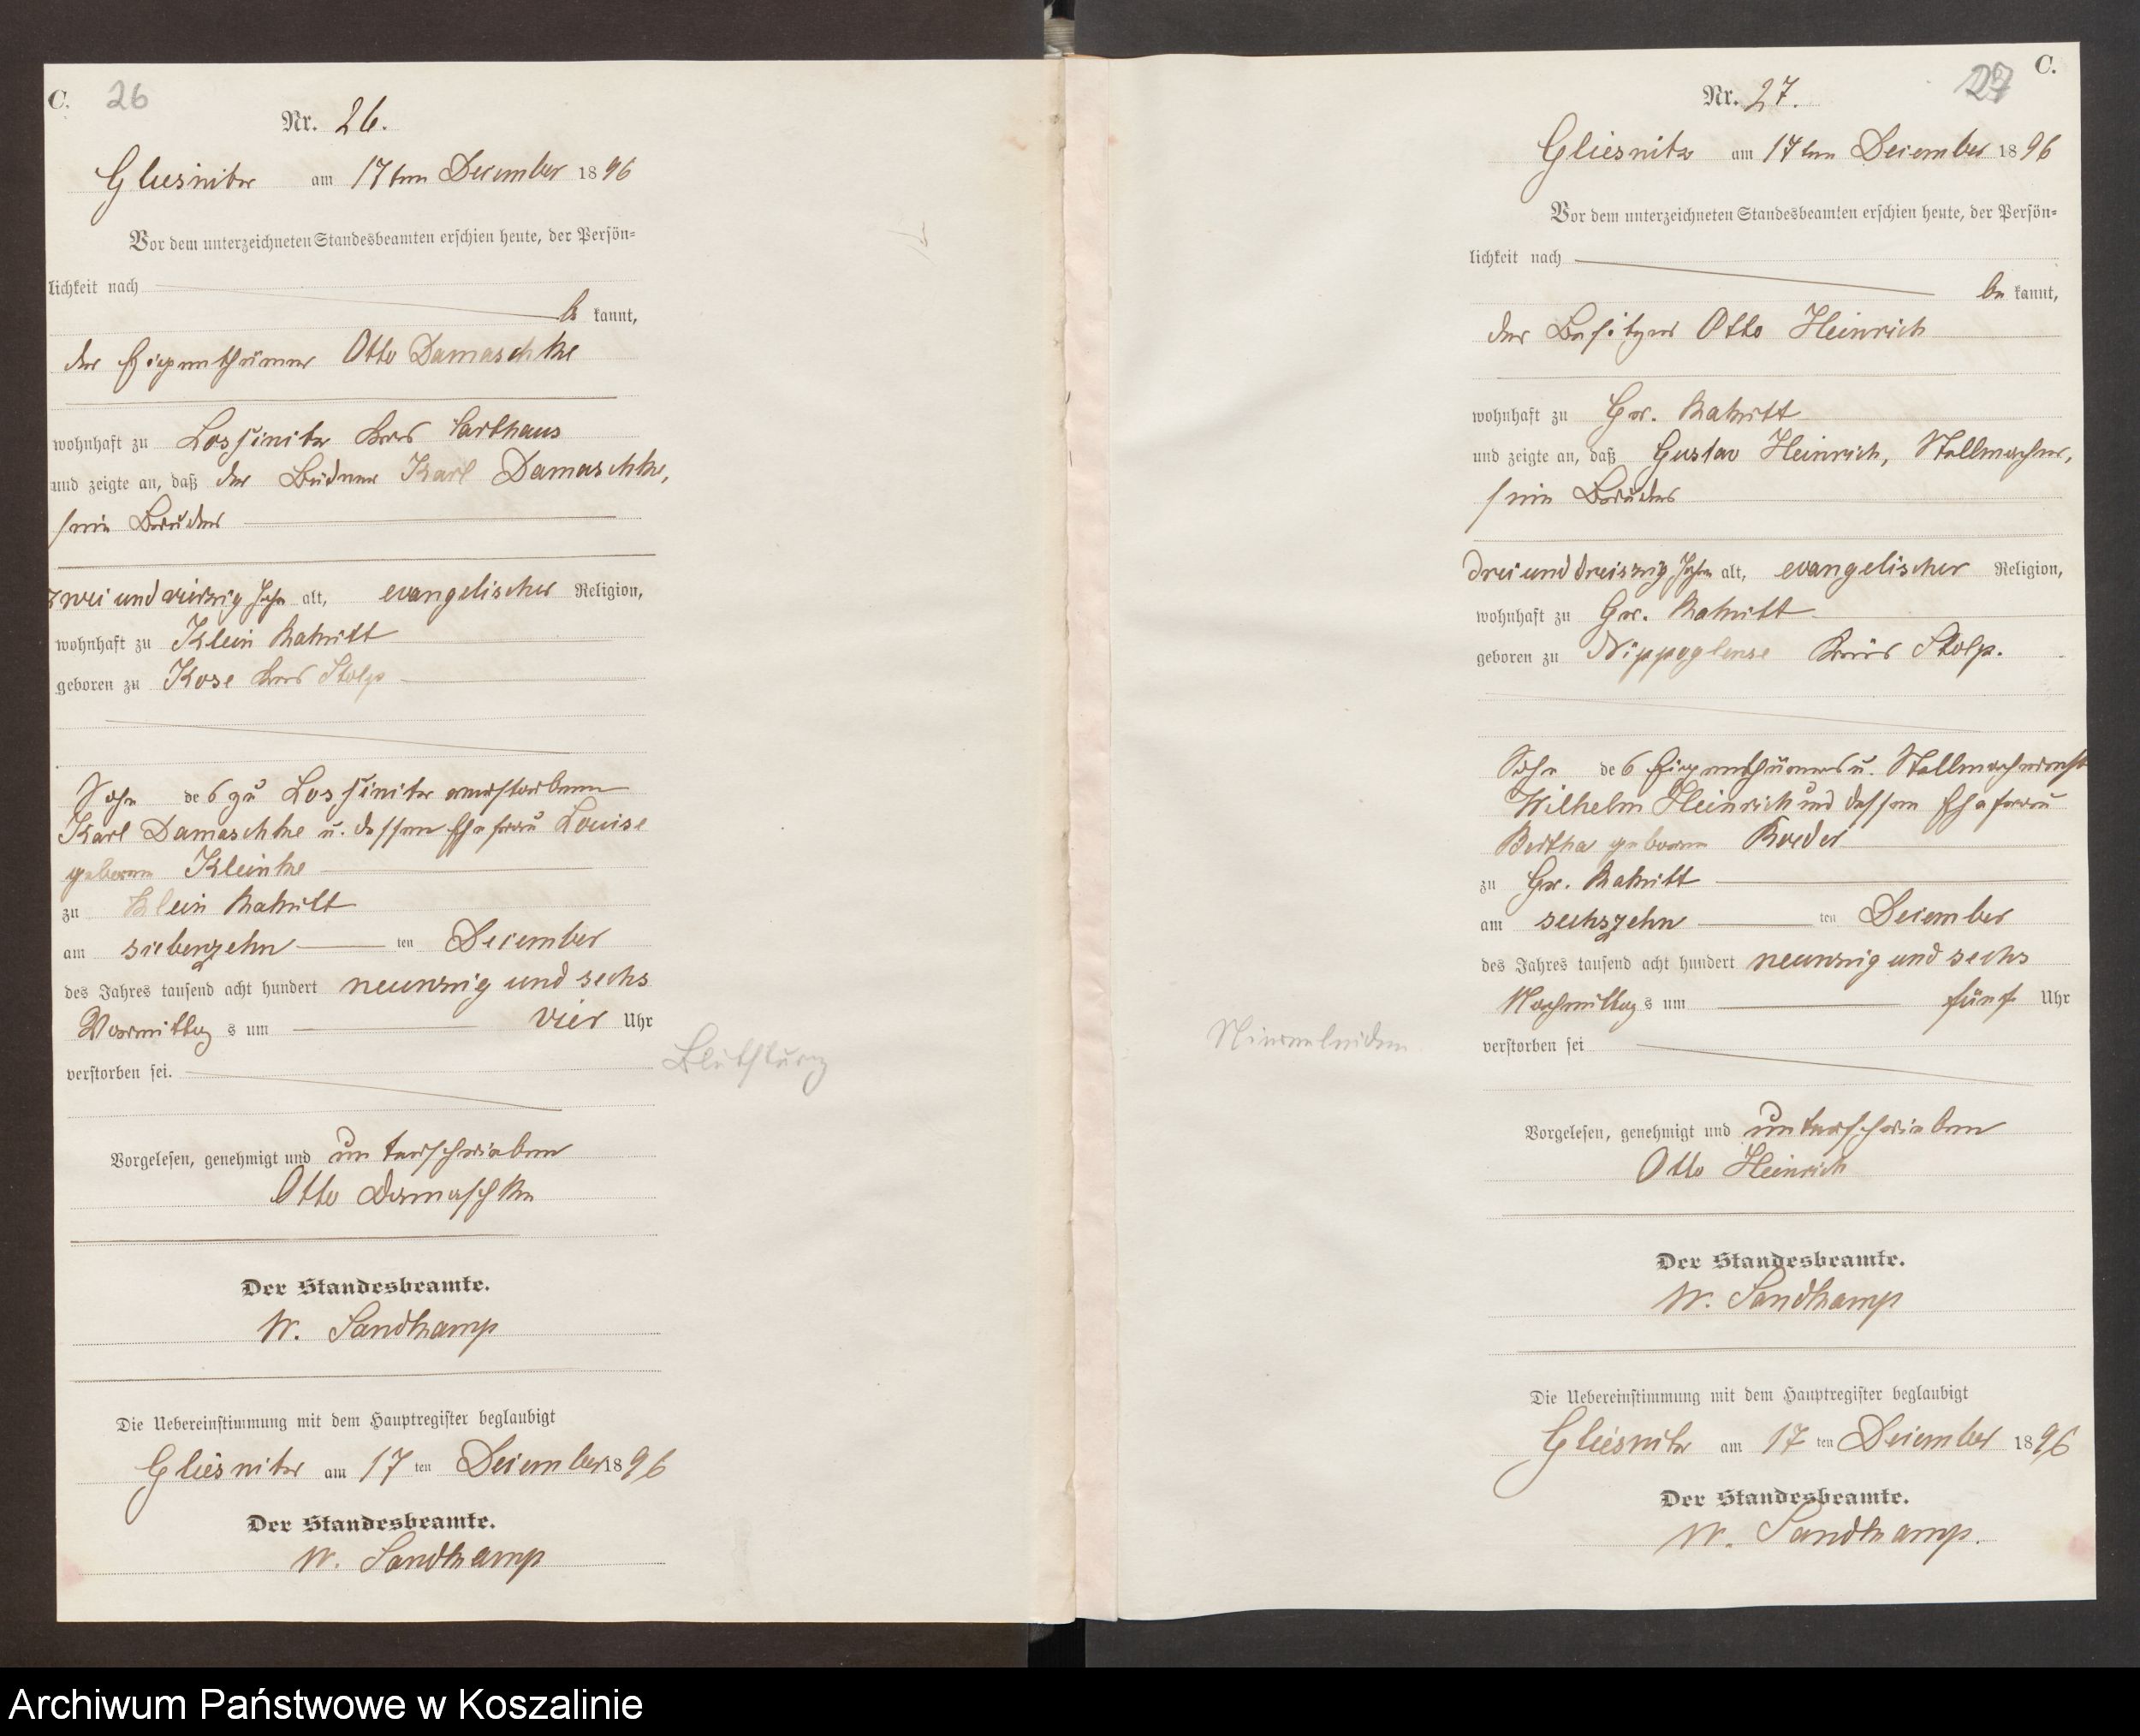 C. 26
Nr. 26.
Gliesnitz am 17ten December 1896
Vor dem unterzeichneten Standesbeamten erschien heute, der Persön-
lichkeit nach
be kannt,
der Eigenthümer Otto Damaschke
wohnhaft zu Lossinitz Kreis Carthaus
und zeigte an, daß der Büdner Karl Damaschke,
sein Bruder
zwei und vierzig Jahr alt, evangelischer Religion,
wohnhaft zu Klein Rakitt
geboren zu Kose Kreis Stolp
Sohn des zu Lossinitz verstorbenen
Karl Damaschke u. dessen Ehefrau Louise
geborene Kleinke
zu Klein Rakitt
am siebenzehn ten December
des Jahres tausend acht hundert neunzig und sechs
Vormittag s um vier Uhr
verstorben sei.
Blutsturz
Vorgelesen, genehmigt und unterschrieben
Otto Damaschke
Der Standesbeamte.
W. Sandkamp
Die Uebereinstimmung mit dem Hauptregister beglaubigt
Gliesnitz am 17 ten December 1896
Der Standesbeamte.
W. Sandkamp
27 C.
Nr. 27.
Gliesnitz am 17ten December 1896
Vor dem unterzeichneten Standesbeamten erschien heute, der Persön-
lichkeit nach
be kannt,
der Besitzer Otto Heinrich
wohnhaft zu Gr. Rakitt
und zeigte an, daß Gustav Heinrich, Stellmacher,
sein Bruder
drei und dreiszig Jahre alt, evangelischer Religion,
wohnhaft zu Gr. Rakitt
geboren zu Nippoglense Kreis Stolp.
Sohn des Eigenthümers u. Stellmachermstr
Wilhelm Heinrich und dessen Ehefrau
Bertha geborene Roeder
zu Gr. Rakitt
am sechszehn ten December
des Jahres tausend acht hundert neunzig und sechs
Nachmittag s um fünf Uhr
Nierenleiden
verstorben sei
Vorgelesen, genehmigt und unterschrieben
Otto Heinrich
Der Standesbeamte.
W. Sandkamp
Die Uebereinstimmung mit dem Hauptregister beglaubigt
Gliesnitz am 17 ten December 1896
Der Standesbeamte.
W. Sandkamp.
Archiwum Państwowe w Koszalinie